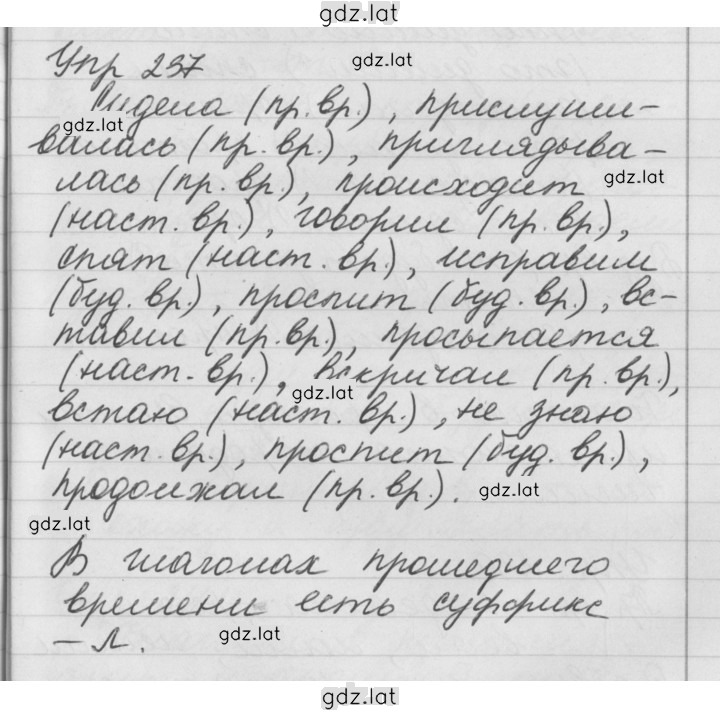 gdz.lat
Упр 237
gdz.lat
Сидела (пр.вр.), прислуши-
gdz.lat
валась (пр.вр.), приглядыва-
лась (пр.вр.), происходит
gdz.lat
(наст.вр.), говорил (пр.вр.),
спят (наст.вр.), исправим
(буд.вр.), проспит (буд.вр.), вс-
тавил (пр.вр.), просыпается
(наст.вр.), вскричал (пр.вр.),
gdz.lat
встаю (наст.вр.), не знаю
(наст.вр.), проспит (буд.вр.),
продолжал (пр.вр.).
gdz.lat
gdz.lat
В глаголах прошедшего
времени есть суффикс
-л.
gdz.lat
gdz.lat